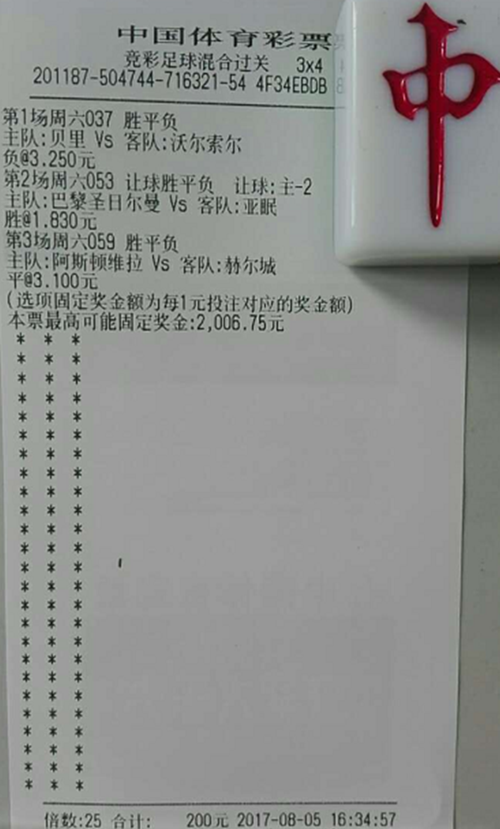 中国体育彩票
竞彩足球混合过关 3x4
201187-504744-716321-54 4F34EBDB
第1场周六037 胜平负
主队:贝里 Vs 客队:沃尔索尔
负@3.250元
第2场周六053 让球胜平负 让球:主-2
主队:巴黎圣日尔曼 Vs 客队:亚眠
胜@1.830元
第3场周六059 胜平负
主队:阿斯顿维拉 Vs 客队:赫尔城
平@3.100元
(选项固定奖金额为每1元投注对应的奖金额)
本票最高可能固定奖金:2,006.75元
倍数:25 合计: 200元 2017-08-05 16:34:57
中